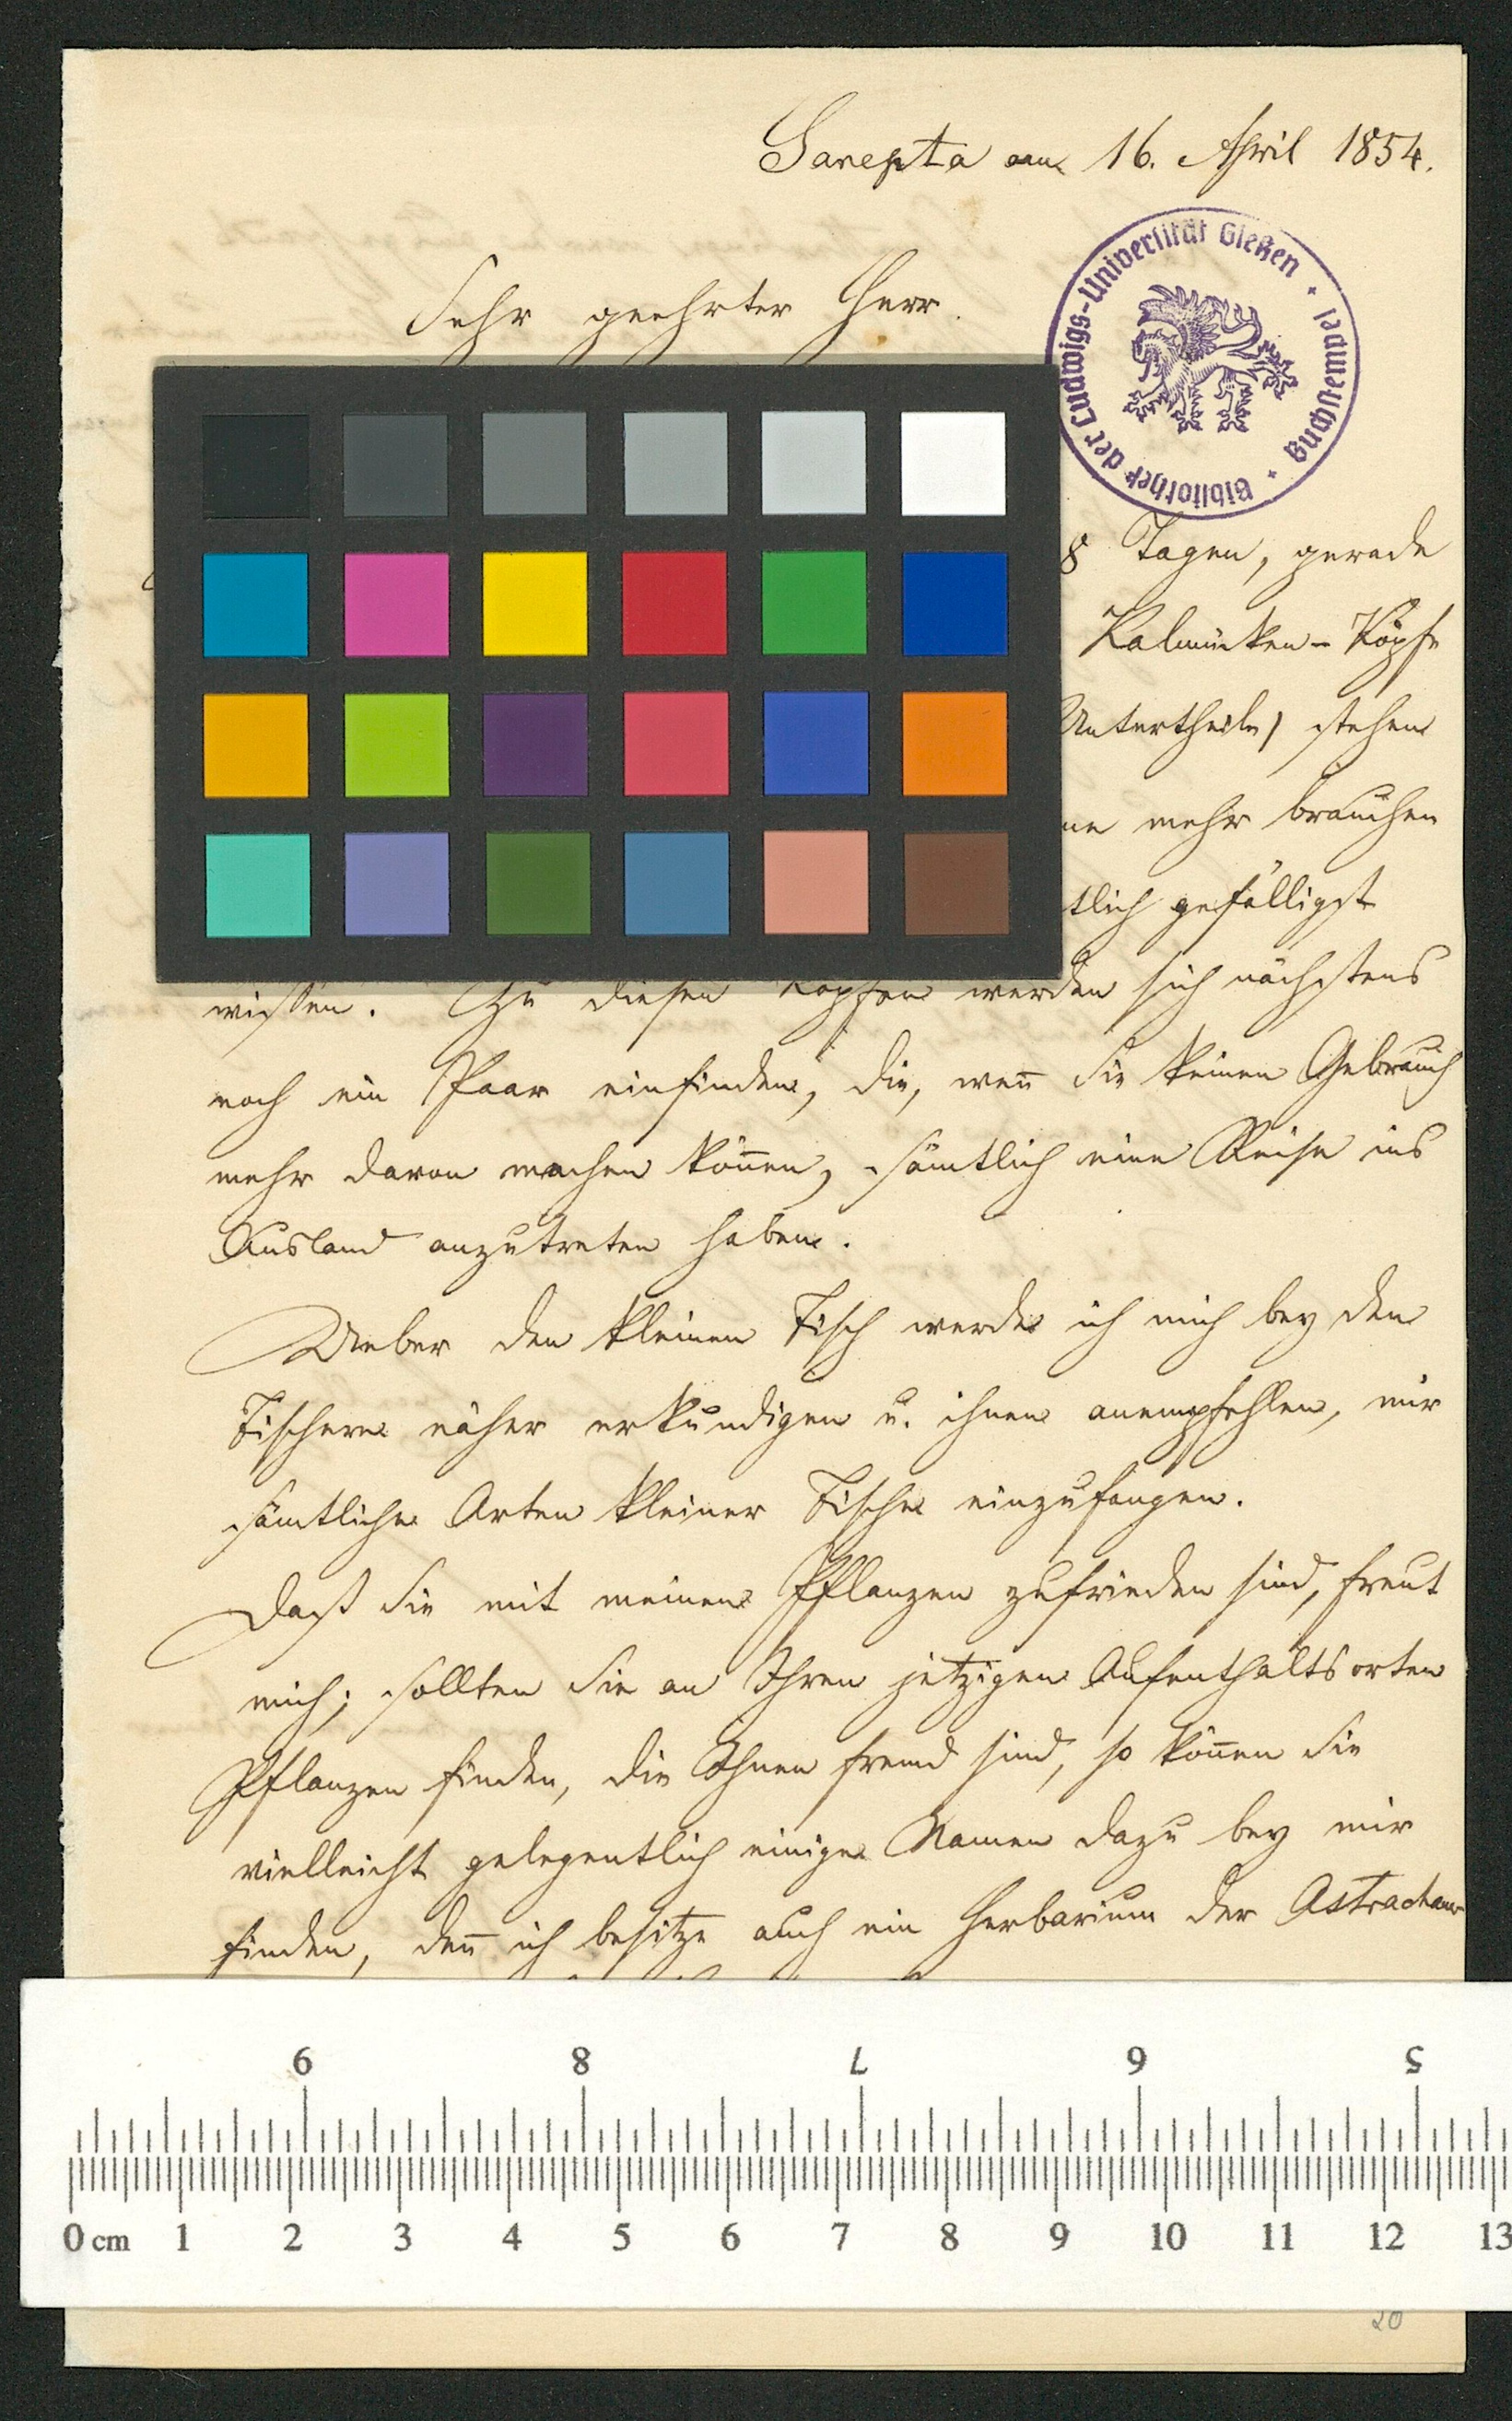 Sarepta am 16. April 1854.
Bibliothek der Ludwigs-Universität Gießen · Buchstempel
Sehr geehrter Herr.
8 Tagen, gerade
Kalmücken-Köpfe
Untertheile) stehen
ne mehr brauchen
tlich gefälligst
wissen. Zu diesen Köpfen werden sich nächstens
noch ein Paar einfinden, die, weñ Sie keinen Gebrauch
mehr davon machen köñen, sämtlich eine Reise ins
Ausland anzutreten haben.
Ueber den kleinen Fisch werde ich mich bey den
Fischern näher erkundigen u. ihnen anempfehlen, mir
sämtliche Arten kleiner Fische einzufangen.
Daß Sie mit meinen Pflanzen zufrieden sind, freut
mich; sollten Sie an Ihren jetzigen Aufenthaltsorten
Pflanzen finden, die Ihnen fremd sind, so köñen Sie
vielleicht gelegentlich einige Namen dazu bey mir
finden, deñ ich besitze auch ein Herbarium der Astrachaner
9 8 7 6 5
0 cm 1 2 3 4 5 6 7 8 9 10 11 12 13
20